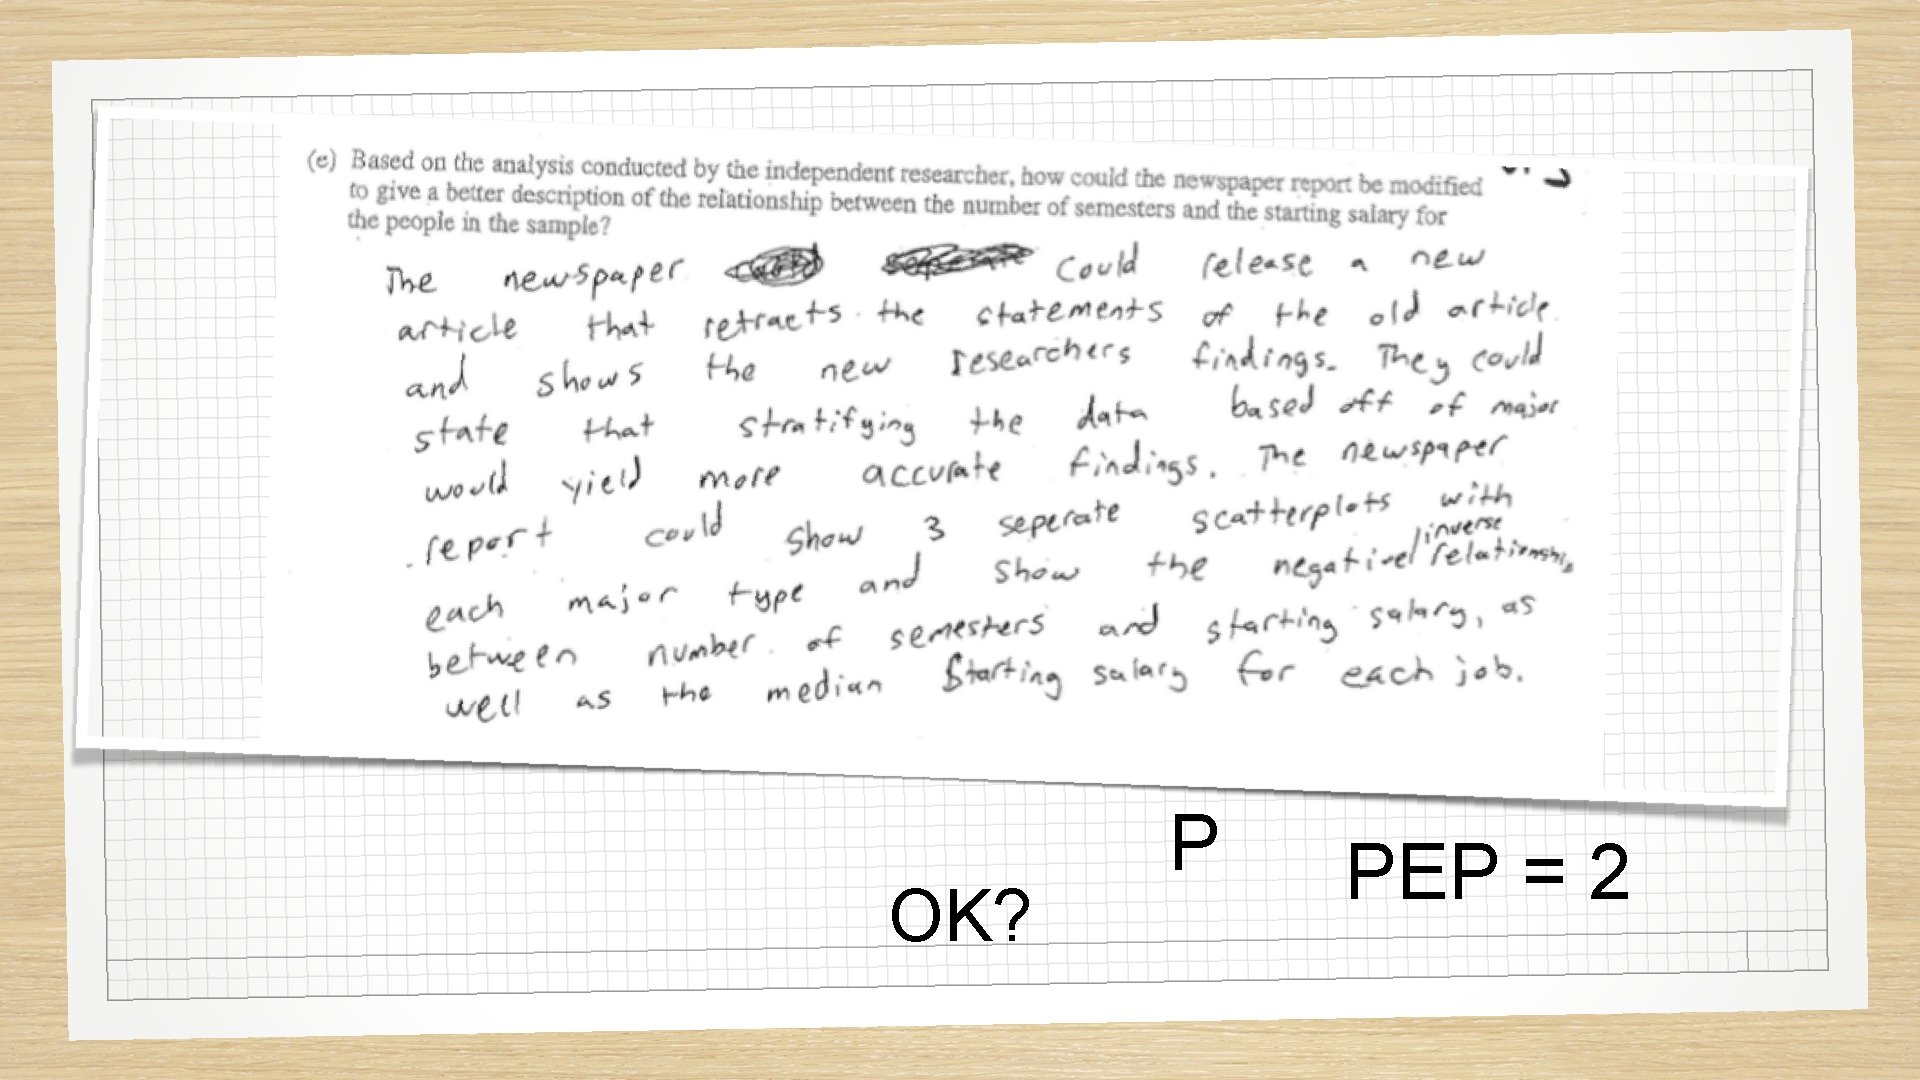 (e) Based on the analysis conducted by the independent researcher, how could the newspaper report be modified
to give a better description of the relationship between the number of semesters and the starting salary for
the people in the sample?
The newspaper could release a new
article that retracts the statements of the old article
and shows the new researchers findings. They could
state that stratifying the data based off of major
would yield more accurate findings. The newspaper
report could show 3 seperate scatterplots with
each major type and show the negative/inverse relationship
between number of semesters and starting salary, as
well as the median starting salary for each job.
P
PEP = 2
OK?